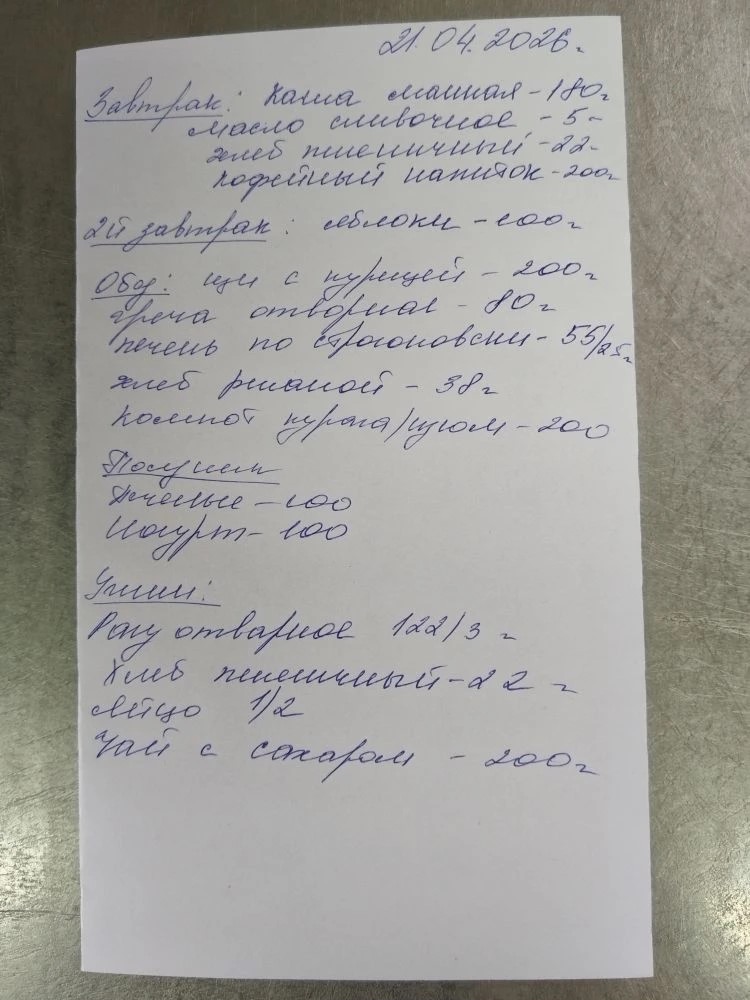 21.04.2026г
Завтрак: Каша манная - 180г
масло сливочное - 5-
хлеб пшеничный - 22-
кофейный напиток - 200г
2й завтрак: яблоки - 100г
Обед: щи с курицей - 200г
греча отварная - 80г
печень по строгоновски - 55/25г
хлеб ржаной - 38г
компот курага/изюм - 200
Полдник
Печенье - 100
Йогурт - 100
Ужин:
Рагу отварное 122/3 г
Хлеб пшеничный - 22 г
Яйцо 1/2
Чай с сахаром - 200г